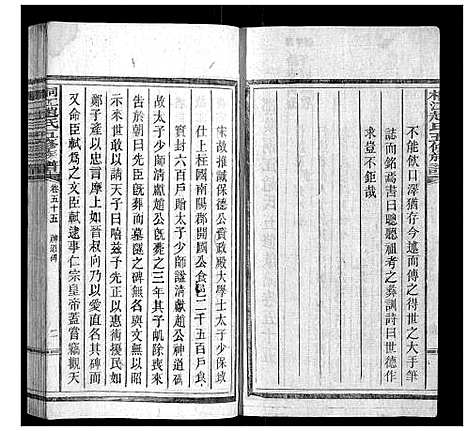 桐江趙氏五修族譜
不能飲口深猶存今遠而傳之得世之大手筆
誌而銘焉書曰聰聽祖考之彝訓詩曰世德作
求豈不鉅哉
宋故推誠保德公資政大學士太子少保致
仕上柱國南陽郡開國公食邑二千五百戶食
實封六百戶贈太子少師諡清獻趙公神道碑
故太子少師清獻趙公旣薨之三年其子屼除喪來
告於朝曰先臣旣葬而墓隧之碑無名與文無以昭
示來世敢以請天子曰嘻茲予先正以惠術擾民如
鄭子產以忠言摩上如晉叔向乃以愛直名其碑而
又命臣軾為之文臣軾逮事仁宗皇帝蓋嘗竊觀天
桐江趙氏五修族譜 卷五十五 神道碑 二